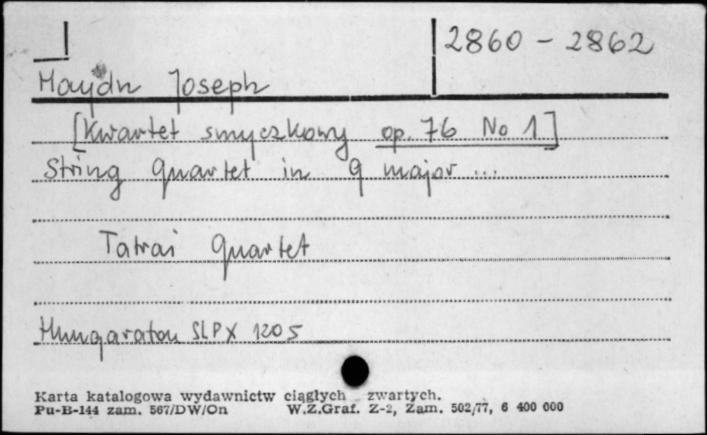 2860 - 2862
Haydn Joseph
[Kwartet smyczkowy op. 76 No 1]
String Quartet in G major ...
Tatrai Quartet
Hungaraton SLPX 1205
Karta katalogowa wydawnictw ciągłych zwartych.
Pu-B-144 zam. 567/DW/On W.Z.Graf. Z-2, Zam. 502/77, 6 400 000